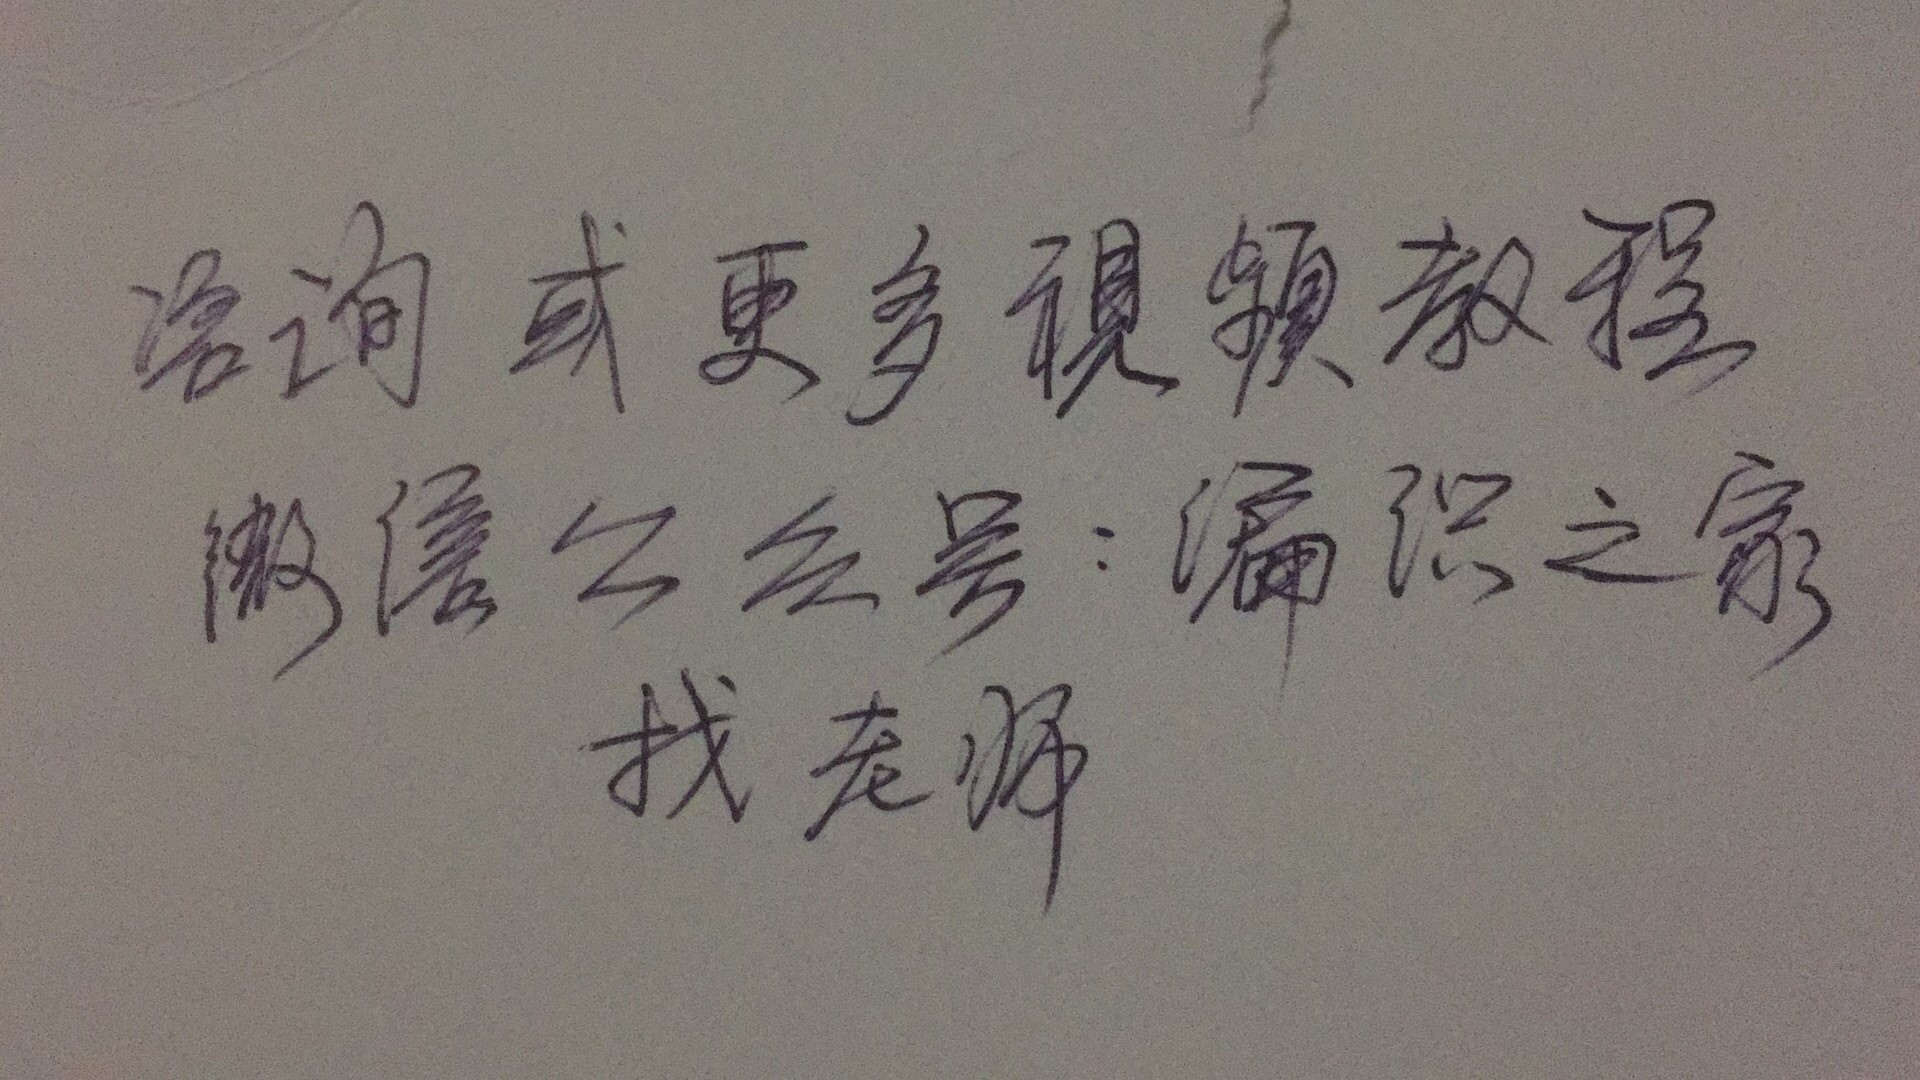 咨询或更多视频教程
微信公众号:漏识之家
找老师